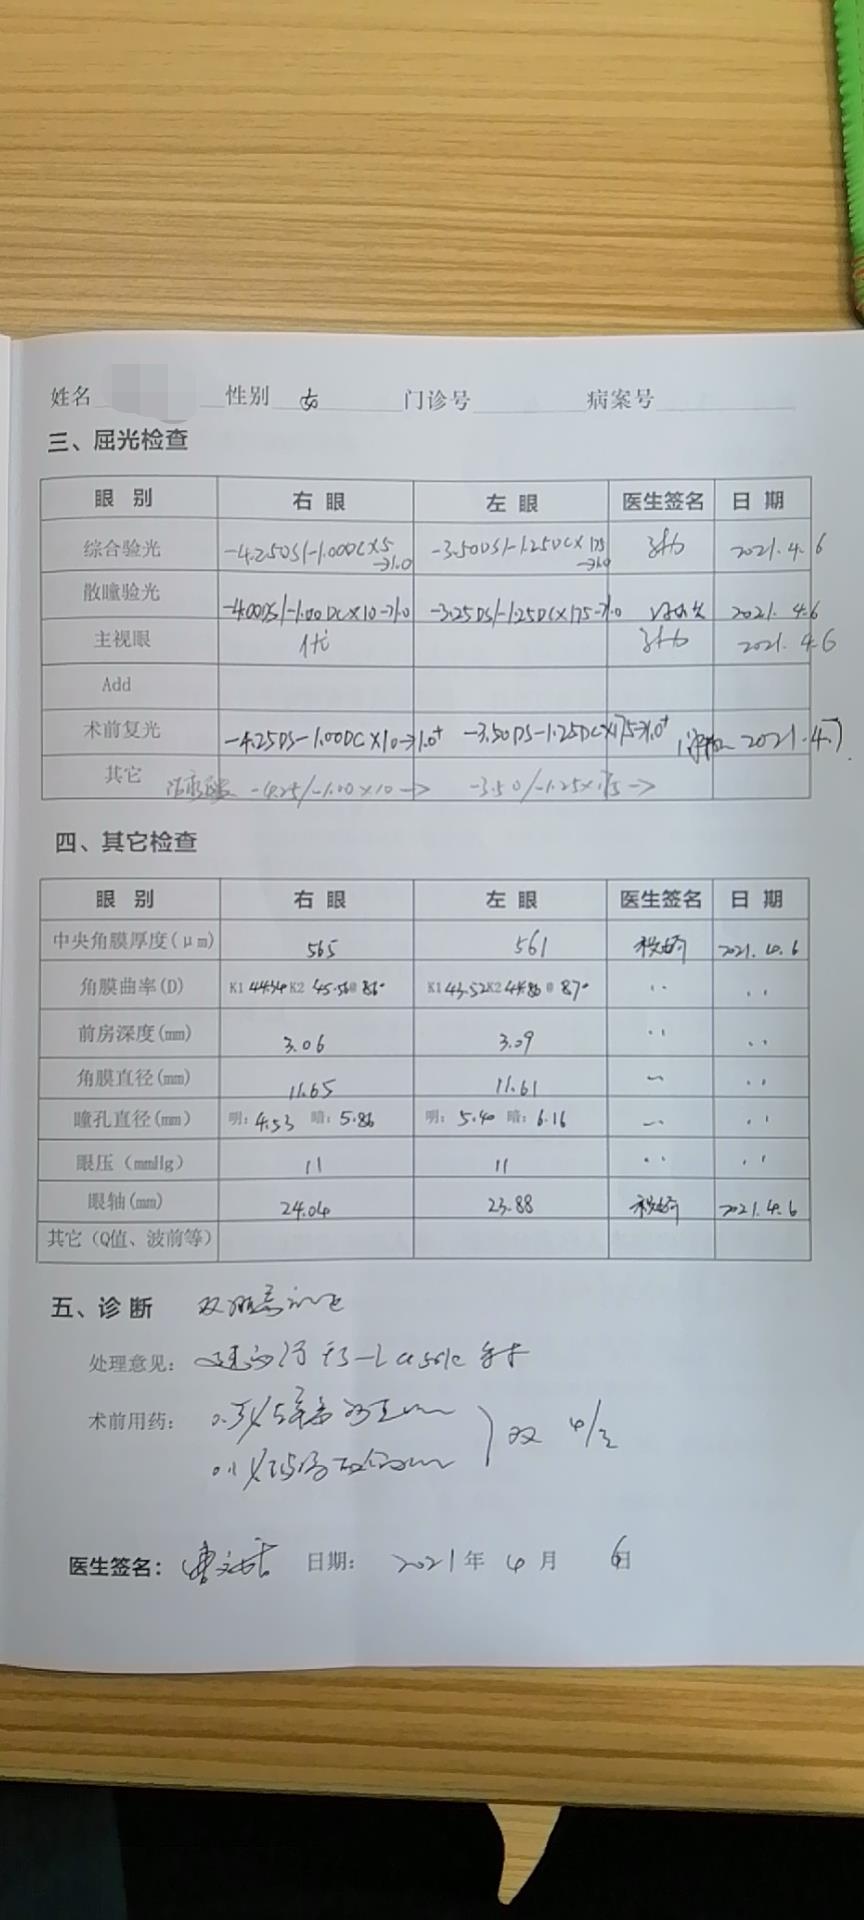 姓名 性别 女 门诊号 病案号
三、屈光检查
眼 别 右 眼 左 眼 医生签名 日 期
综合验光 -4.25DS/-1.00DC×5→1.0 -3.50DS/-1.25DC×175→1.0 2021.4.6
散瞳验光 -4.00DS/-1.00DC×10→1.0 -3.25DS/-1.25DC×175→1.0 2021.4.6
主视眼 2021.4.6
Add
术前复光 -4.25DS-1.00DC×10→1.0⁺ -3.50DS-1.25DC×175→1.0⁺ 2021.4.7
其它 -4.25/-1.00×10→ -3.50/-1.25×175→
四、其它检查
眼 别 右 眼 左 眼 医生签名 日 期
中央角膜厚度(μm) 565 561 2021.4.6
角膜曲率(D) K1 44.54 K2 45.56@86° K1 43.52 K2 44.86@87° ‥ ‥
前房深度(mm) 3.06 3.09 ‥ ‥
角膜直径(mm) 11.65 11.61 ‥
瞳孔直径(mm) 明: 4.53 暗: 5.86 明: 5.40 暗: 6.16 ‥
眼压（mmHg） 11 11 ‥ ‥
眼轴(mm) 24.04 23.88 2021.4.6
其它（Q值、波前等）
五、诊 断 双眼
处理意见: 建议行 手术
术前用药: 双 4/日
医生签名: 日期: 2021年 4月 6日